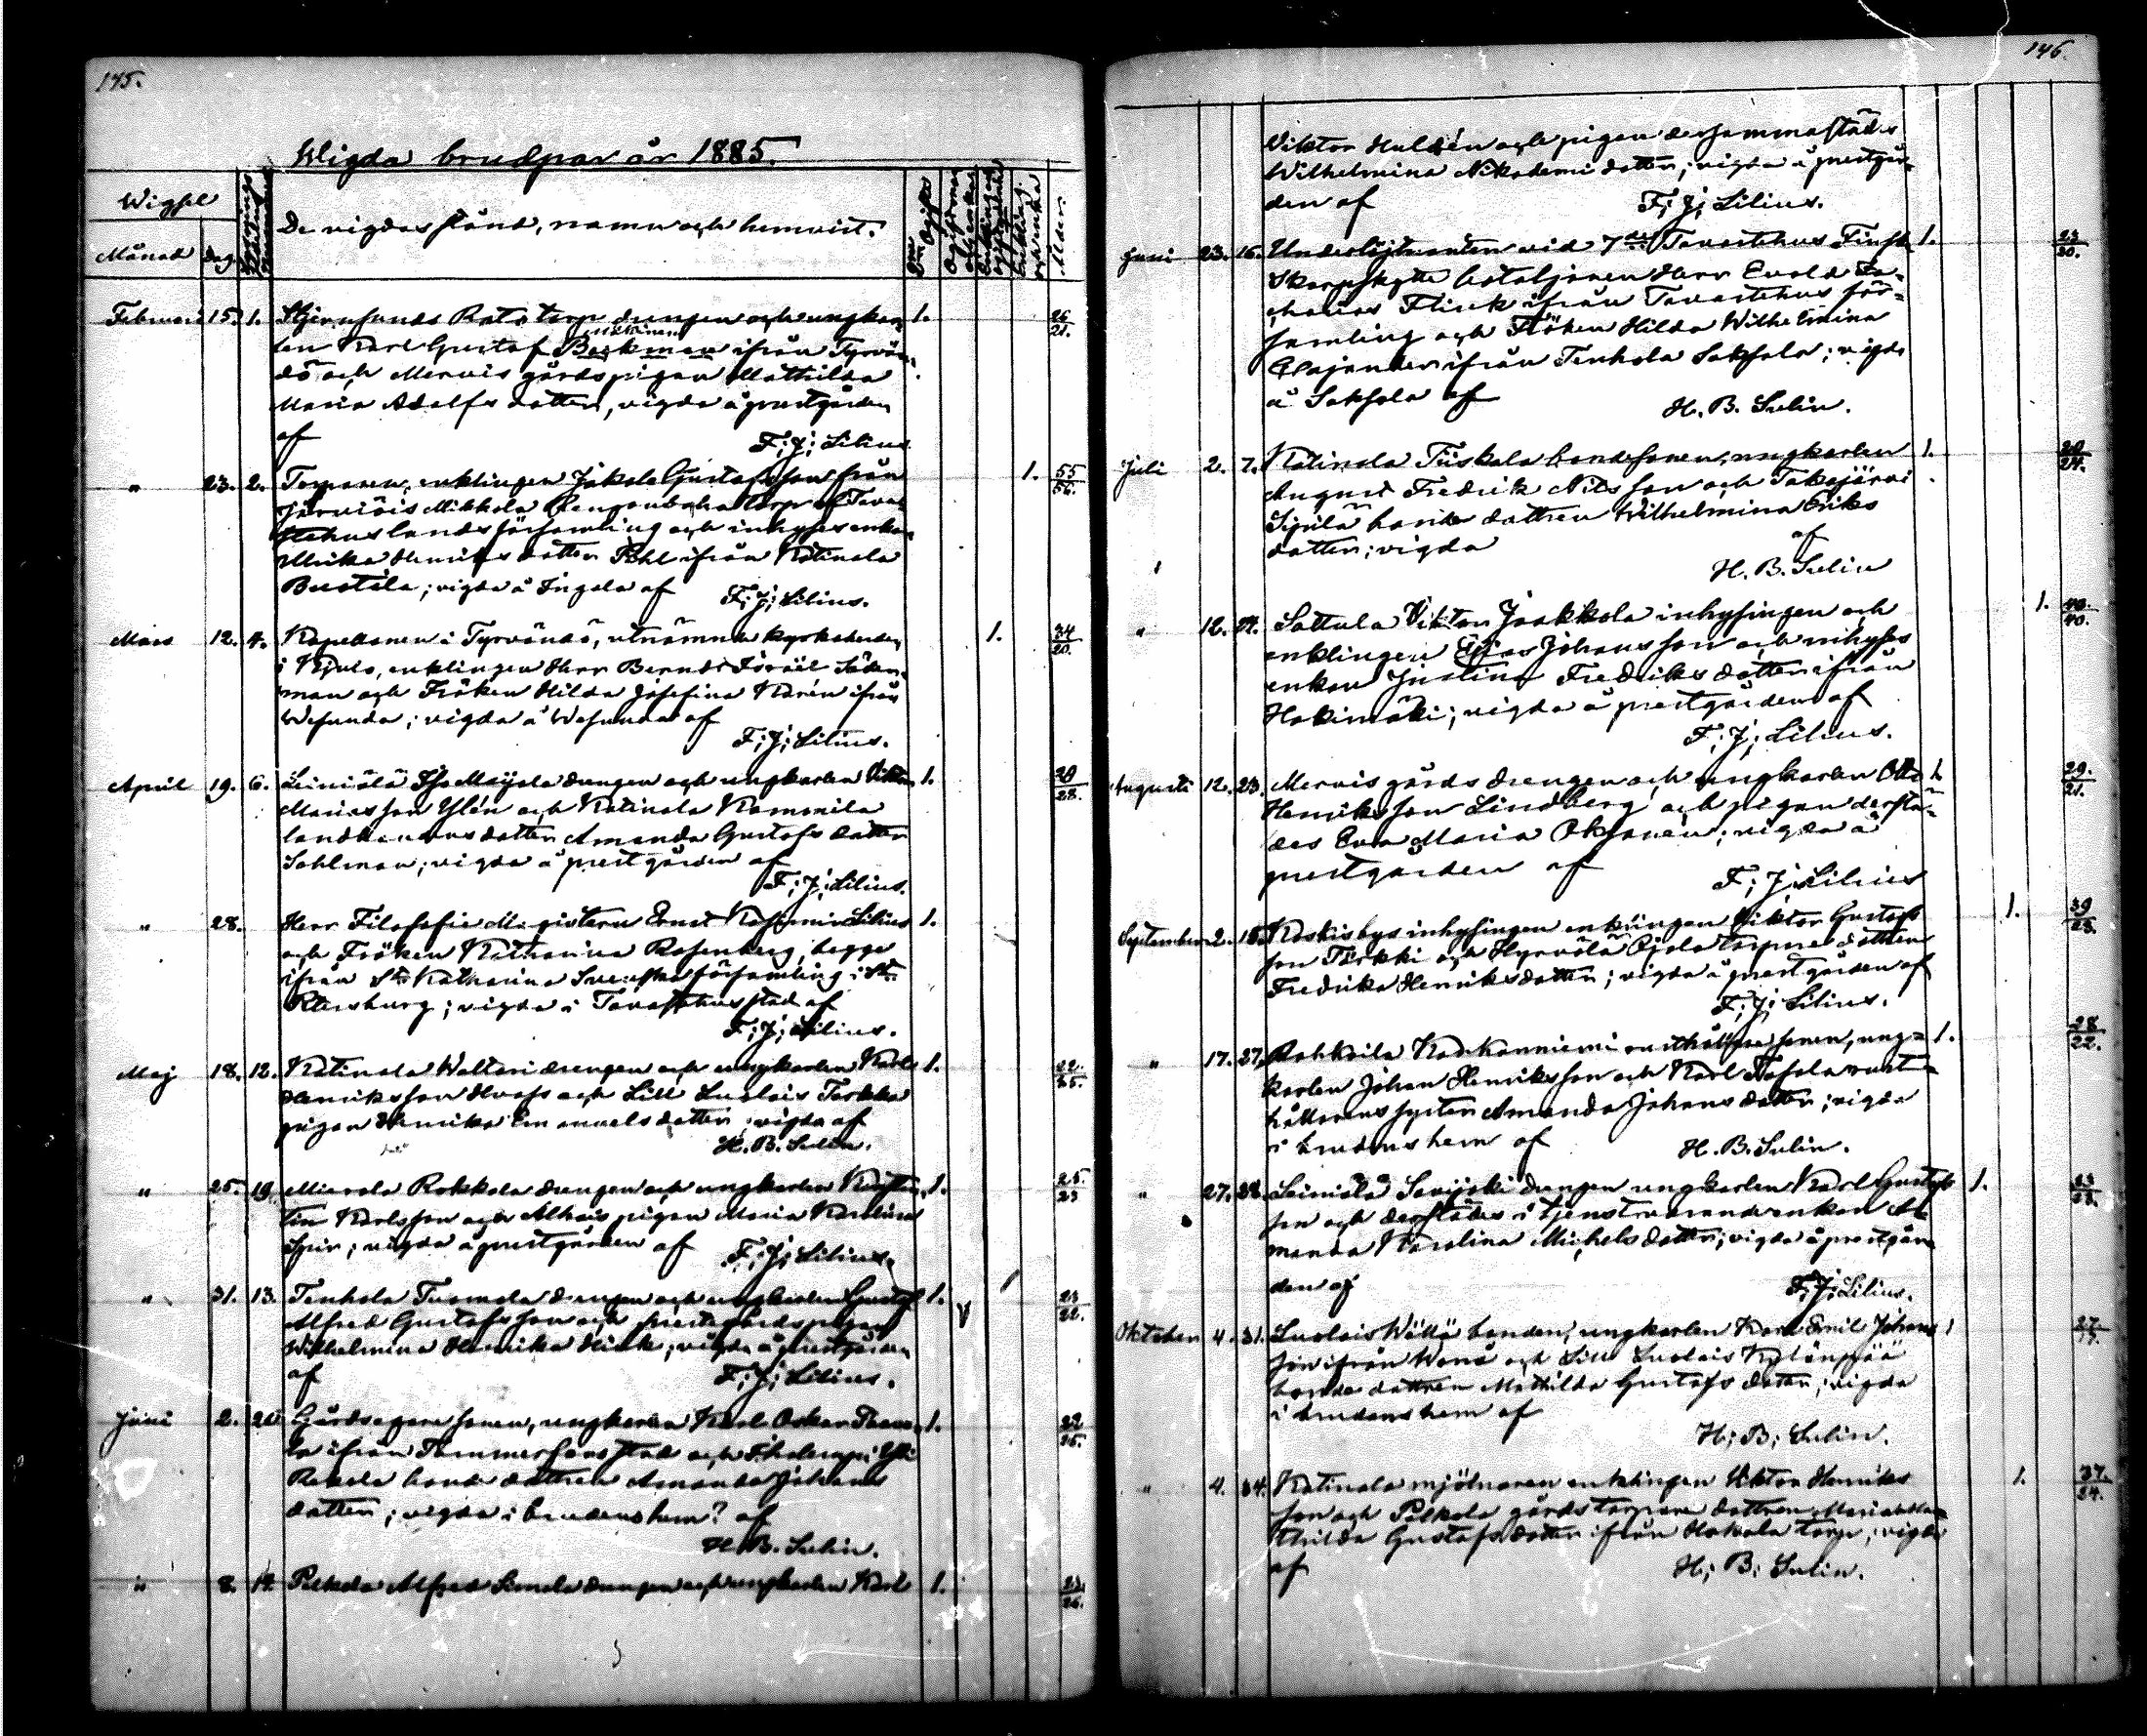 145.
Wigda brudpar år 1885.
Wigsel
Månad
Dag.
De vigdas stånd, namn och hemvist.
Ålder.
Februari 15. 1. Stjernsunds Rats torp drengen och ungkar- 1. 26/21.
len Karl Gustaf Beckman ifrån Tyrvän-
dö och Mervis gårds pigan Mathilda
Maria Adolfs dotter, vigda å prestgården
af
F; J; Lilius
" 23. 2. Torparen, enklingen Jakob Gustafsson från 1. 55/56.
Järviöis Mikkola torp af Tava-
stehus lands församling och inhyses enkan
Ulrika Henriks dotter Pihl ifrån Katinala
Bustila; vigda å Ingala af
F; J; Lilius.
Mars 12. 4. Kapellanen i Tyrvändö, utnämnde kyrkoherden 1. 34/20.
i Kjulo, enklingen Herr Berndt Israël Söder-
man och Fröken Hilda Josefina Karén ifrån
Wesunda; vigda å Wesunda af
F; J; Lilius.
April 19. 6. Leiniälä Iso Maijala drengen och ungkarlen Viktor 1. 20/28.
Mariasson Ylén och Katinala Kammila
landbondens dotter Amanda Gustafs dotter
Sahlman; vigda å prestgården af
F; J; Lilius.
" 28. Herr Filosofie Magistern Ernst Kasimir Lilius 1.
och Fröken Katharina Rosenberg, begge
ifrån S:t Katharina Svenska församling i S:t
Petersburg; vigda i Tavastehus stad af
F; J; Lilius.
Maj 18. 12. Katinala Waltari drengen och ungkarlen Karl 1. 22/35.
Henriksson Hvass och Lill Luolais Terkko
pigan Henrika Emanuels dotter; vigda af
H. B. Sulin.
" 25. 19. Mierola Rokkola drengen och ungkarlen Konstan- 1. 25/23
tin Karlsson och Alhais pigan Maria Karolina
Spir; vigda å prestgården af
F; J; Lilius.
" 31. 13. Tenhola Tuomola drengen och ungkarlen Gustaf 1. 23/22.
Alfred Gustafsson och prestgårds pigan
Wilhelmina Henrika Hink; vigda å prestgården
af
F; J; Lilius.
Juni 2. 20. Gårdsegare sonen, ungkarlen Karl Oskar 1. 22/25.
ifrån Tammerfors stad och Ihalempi Yli
Rekola bonde dottren Amanda Johans
dotter; vigda i brudens hem? af
H. B. Sulin.
" 8. 14. Pelkola Alfred Simola drengen och ungkarlen Karl 1.
146.
Viktor Huldén och pigan dersammastädes
Wilhelmina Nikodemi dotter; vigda å prestgår-
den af
F; J; Lilius.
Juni 23. 16. Underlöjtnanten vid 7:de Tavastehus Finska 1. 23/20.
Skarpskytte bataljonen Herr Evald Za-
charias Flinck ifrån Tavastehus för-
samling och Fröken Hilda Wilhelmina
Cajander ifrån Tenhola Saksala; vigda
å Saksala af
H. B. Sulin.
Juli 2. 7. Katinala Tiiskala bondesonen, ungkarlen 1. 20/24.
August Fredrik Nilsson och Takajärvi
Sipilä bonde dottren Wilhelmina Eriks
dotter; vigda
af
H. B. Sulin
" 12. 24. Sattula Viktor Jaakkola inhysingen och 1. 40./40.
enklingen Efias Johansson och inhyses
enkan Justina Fredriks dotter ifrån
Hakimäki; vigda å prestgården af
F; J; Lilius.
Augusti 12. 23. Mervis gårds drengen och ungkarlen Otto 1. 29./21.
Henriksson Lindberg och pigan derstä-
des Eva Maria Oksanen; vigda å
prestgården af
F; J; Lilius
September 2. 18. Koskis bys inhysingen enklingen Viktor Gustafs 1. 39/23.
son Türkki och Hyrvälä Ojala torpare dottren
Fredrika Henriks dotter; vigda å prestgården af
F; J; Lilius.
" 17. 27. Rahkoila Karkanniemi rusthållare sonen, ung- 1. 28/22.
karlen Johan Henriksson och Karl rust-
hållarens syster Amanda Johans dotter; vigda
i brudens hem af
H. B. Sulin.
" 27. 28. Leiniälä Savijoki drengen ungkarlen Karl Gustafs 1. 23/23.
son och derstädes i tjenst varande enkan A-
manda Karolina Michels dotter; vigda å prestgår-
den af
F; J; Lilius.
Oktober 4. 31. Luolais Wällä bonden, ungkarlen Karl Emil Johans 1
son ifrån Wanå och Lill Luolais Kylänpää
bonde dottren Mathilda Gustafs dotter; vigda
i brudens hem af
H; B; Sulin.
" 4. 34. Katinala mjölnaren enklingen Viktor Henriks 1. 37./24.
son och Pelkola gårds torpare dottren Maria Ma-
thilda Gustafs dotter ifrån Hakala torp; vigda
af
H; B; Sulin.